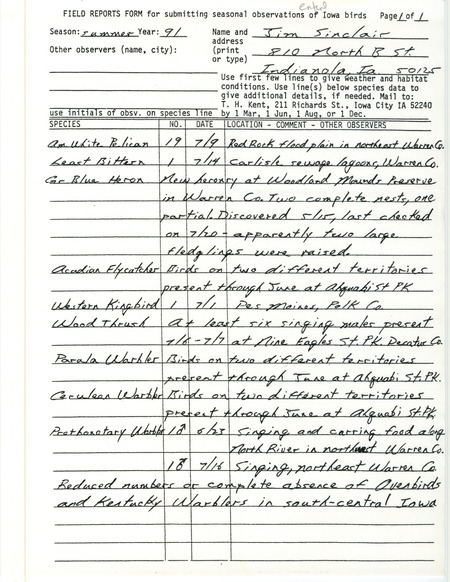 ented
FIELD REPORTS FORM for submitting seasonal observations of Iowa birds Page 1 of 1
Season: summer Year: 91 Name and Jim Sinclair
address
Other observers (name, city): (print 810 North B St
or type)
Indianola, Ia 50125
Use first few lines to give weather and habitat
conditions. Use line(s) below species data to
give additional details, if needed. Mail to:
T. H. Kent, 211 Richards St., Iowa City IA 52240
use initials of obsv. on species line by 1 Mar, 1 Jun, 1 Aug, or 1 Dec.
SPECIES NO. DATE LOCATION - COMMENT - OTHER OBSERVERS
Am White Pelican 19 7/9 Red Rock flood plain in northeast Warren Co.
Least Bittern 1 7/14 Carlisle sewage lagoons, Warren Co.
Gr Blue Heron New heronry at Woodland Mounds Preserve
in Warren Co. Two complete nests, one
partial. Discovered 5/15, last checked
on 7/20 - apparently two large
fledglings were raised.
Acadian Flycatcher Birds on two different territories
present through June at Ahquabi St PK
Western Kingbird 1 7/1 Des Moines, Polk Co.
Wood Thrush At least six singing males present
7/6-7/7 at Nine Eagles St. PK. Decatur Co.
Parula Warbler Birds on two different territories
present through June at Ahquabi St. PK.
Cerulean Warbler Birds on two different territories
present through June at Ahquabi St. PK,
Prothonotary Warbler 1♂ 6/23 Singing and carring food along
North River in northeast Warren Co.
1♂ 7/16 Singing, northeast Warren Co.
Reduced numbers or complete absence of Ovenbirds
and Kentucky Warblers in south-central Iowa